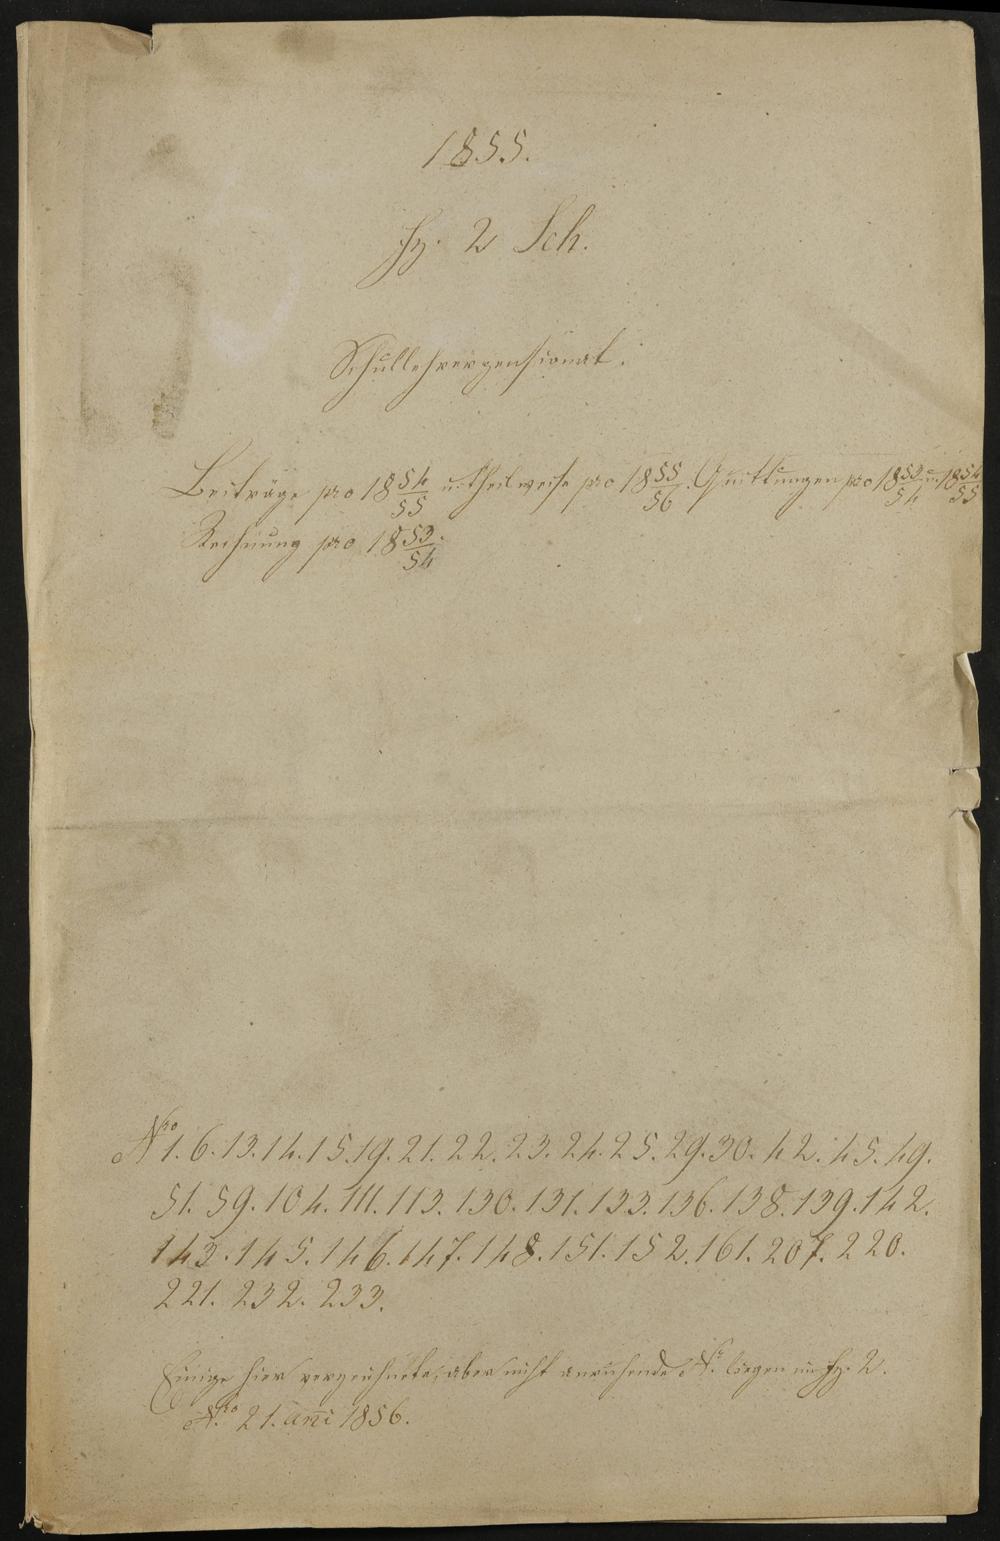 1855.
Fz. 2 Sch.
Schullehrerpensionat.
Beiträge pro 1854/55 u. theilweise pro 1855/56. Quittungen pro 1853/54 u. 1854/55
Rechnung pro 1853/54.
Nro 1. 6. 13. 14. 15. 19. 21. 22. 23. 24. 25. 29. 30. 42. 45. 49.
51. 59. 104. 111. 113. 130. 131. 133. 136. 138. 139. 142.
143. 145. 146. 147. 148. 151. 152. 161. 207. 220.
221. 232. 233.
Einige hier verzeichnete, aber nicht anruhende No. liegen in Fz. 2.
Nro 21. ani 1856.